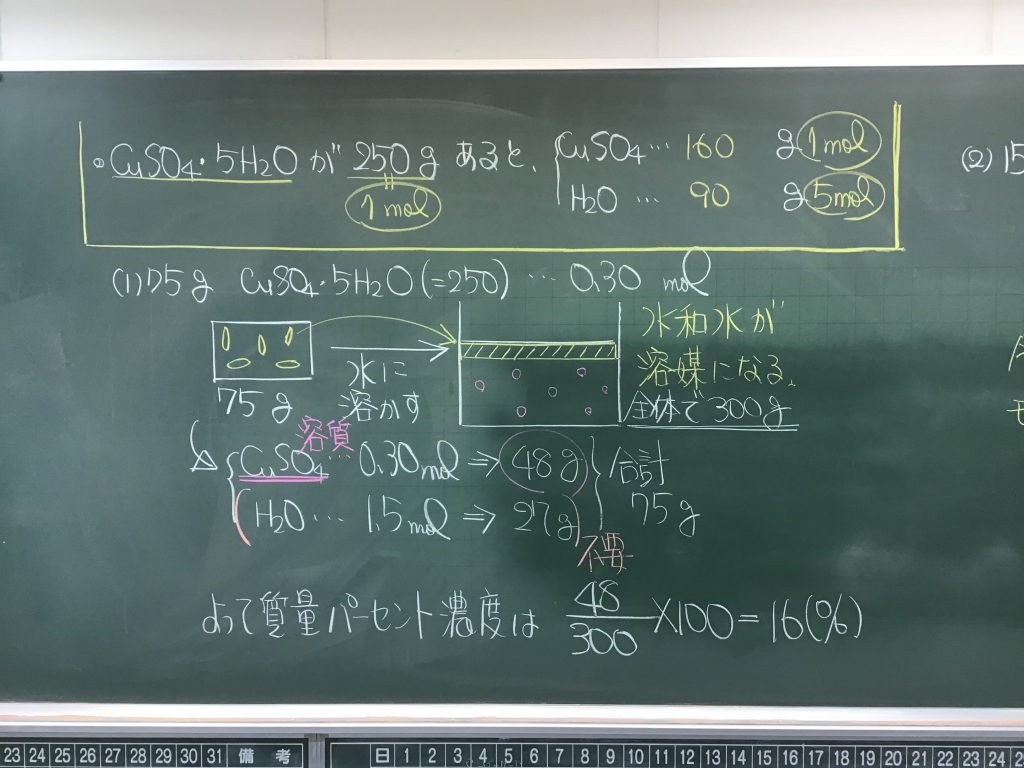 ◦ CuSO4・5H2O が 250g あると、
1 mol
CuSO4… 160 g 1mol
H2O … 90 g 5mol
(1) 75g CuSO4・5H2O (=250) … 0.30 mol
75g
水に
溶かす
水和水が
溶媒になる。
全体で300g
溶質
CuSO4 … 0.30mol ⇒ 48g
H2O … 1.5mol ⇒ 27g
合計
75g
不要
よって質量パーセント濃度は 48/300 ×100 = 16(%)
(2) 15
23 24 25 26 27 28 29 30 31 備考
日 1 2 3 4 5 6 7 8 9 10 11 12 13 14 15 16 17 18 19 20 21 22 23 24